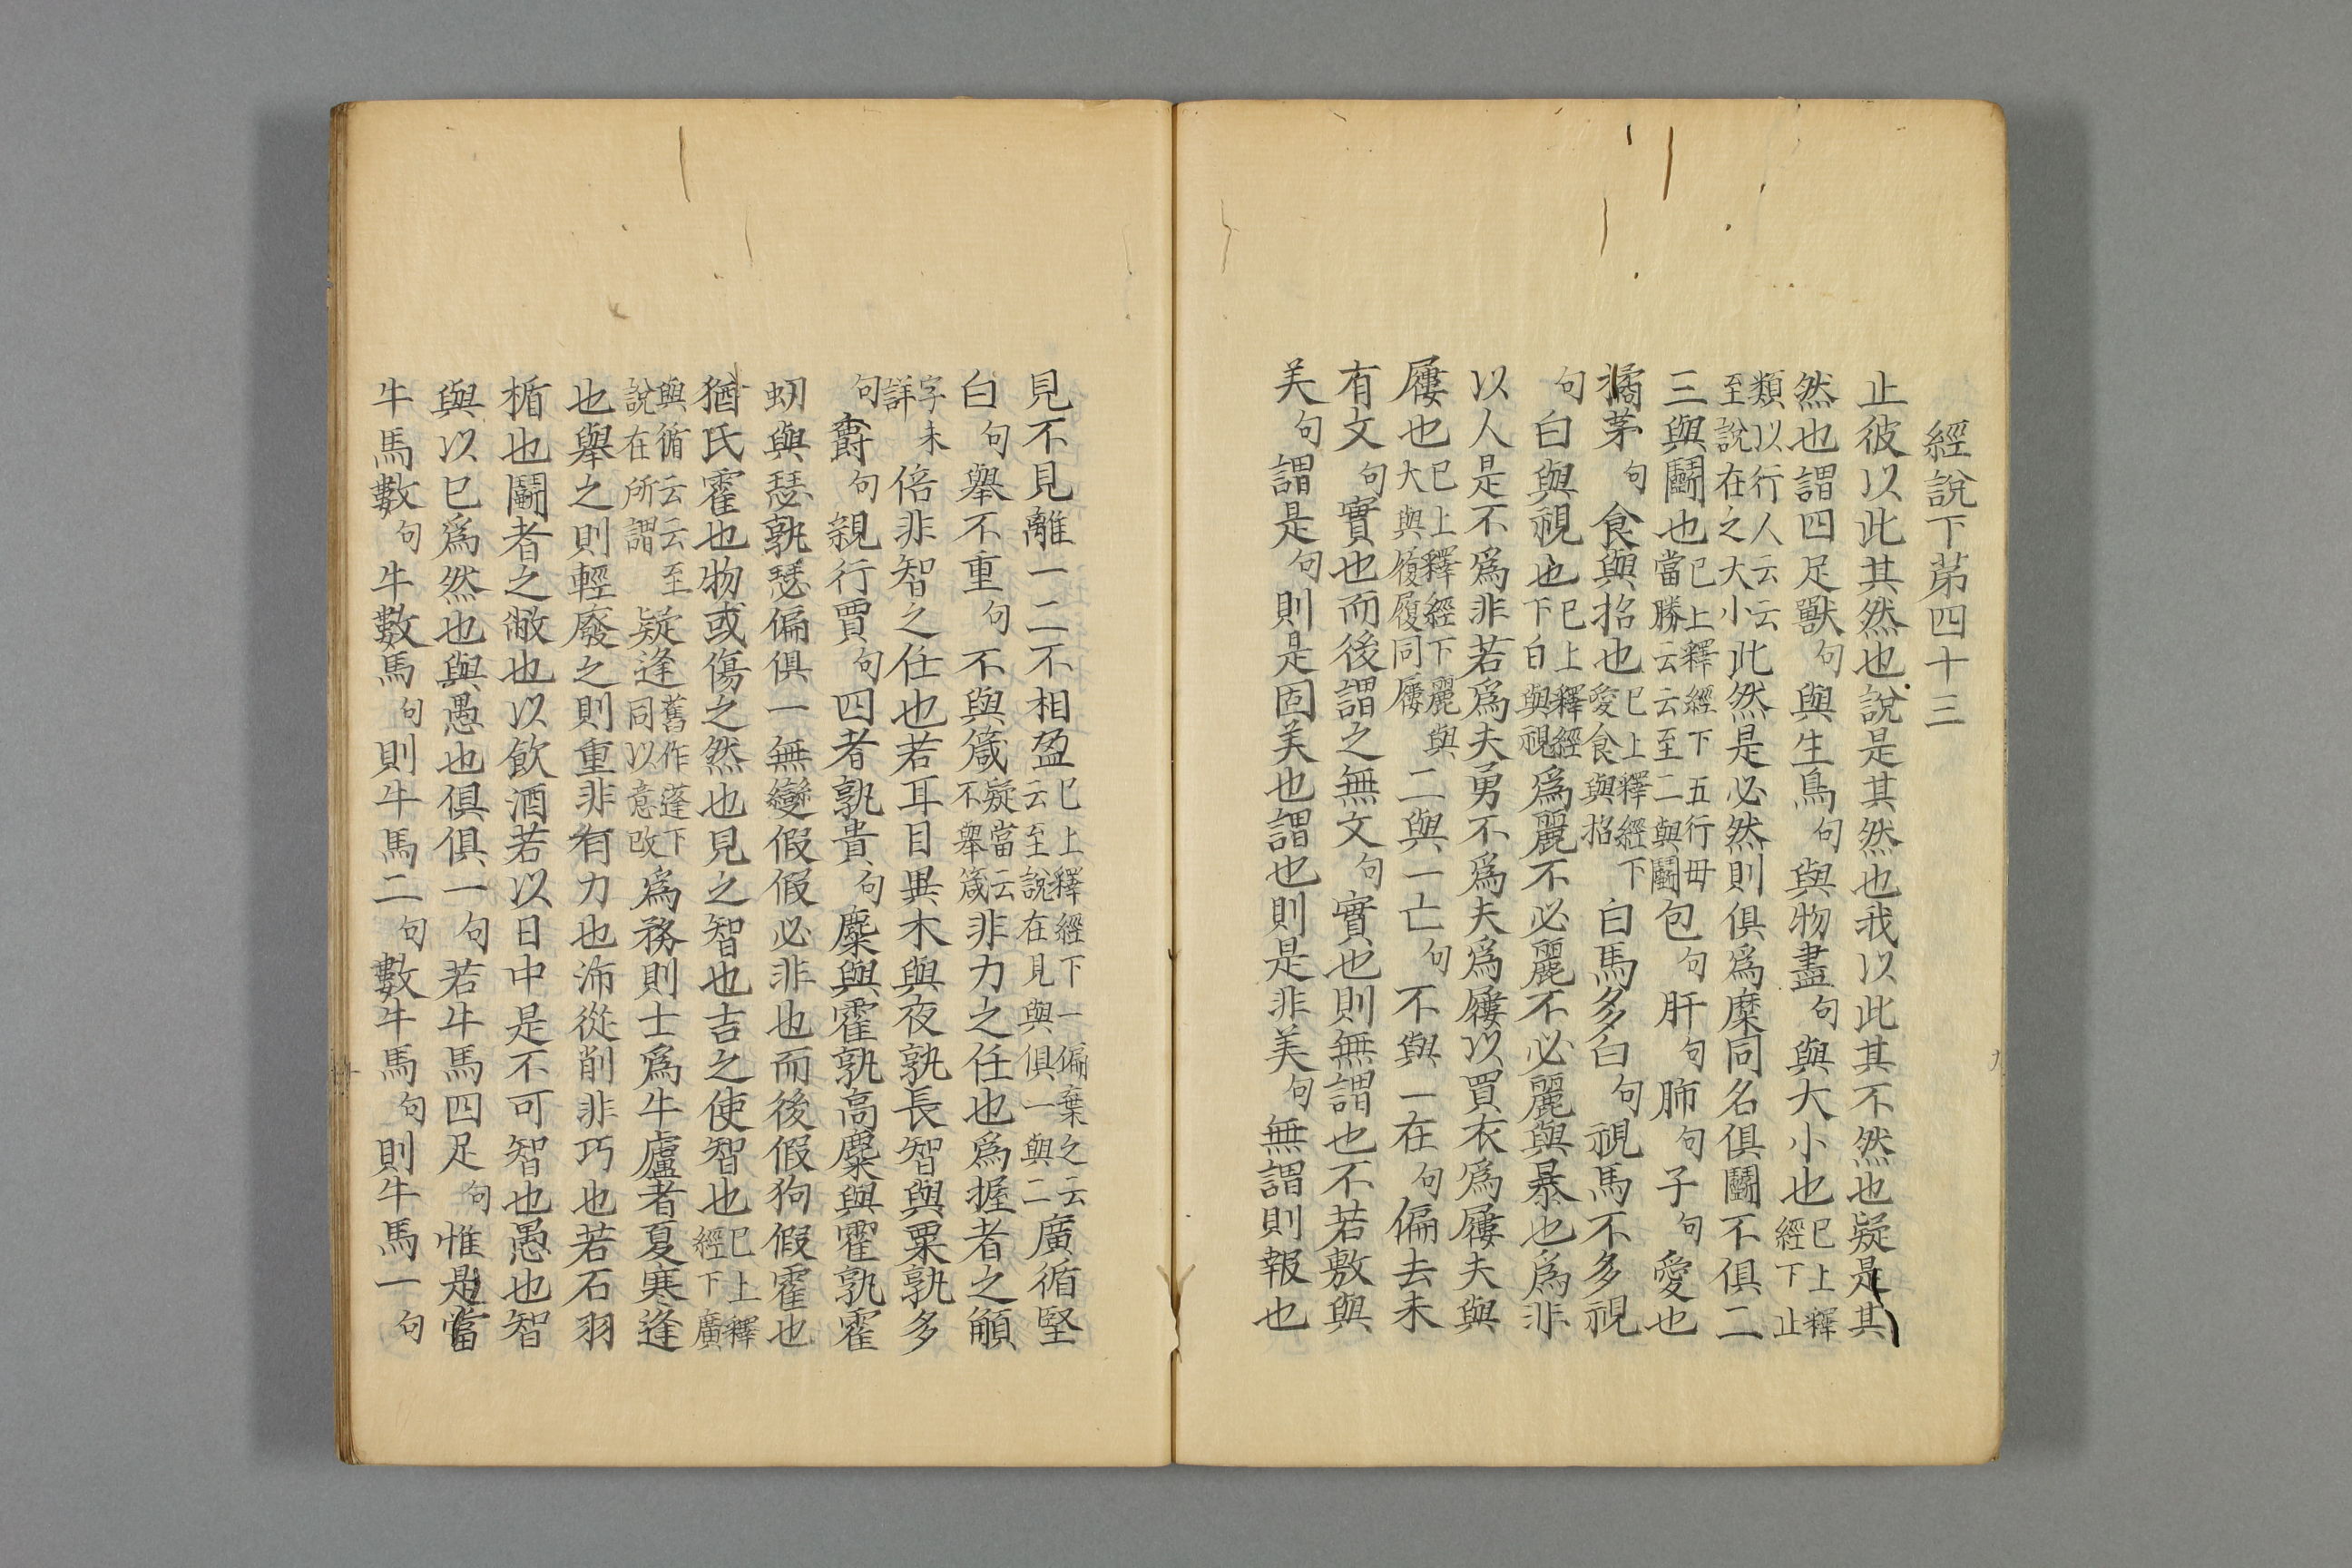 經說下苐四十三
止彼以此其然也說是其然也我以此其不然也疑是其
然也謂四足獸句與生鳥句與物盡句與大小也巳上釋經下止
類以行人云云至說在之大小此然是必然則俱爲糜同名俱鬭不俱二
三與鬭也巳上釋經下五行毋當勝云云至二與鬭包句肝句肺句子句愛也
橘茅句食與招也巳上釋經下愛食與招白馬多白句視馬不多視
句白與視也巳上釋經下白與視爲麗不必麗不必麗與暴也爲非
以人是不爲非若爲夫勇不爲夫爲屨以買衣爲屨夫與
屨也巳上釋經下麗與大與履履同屨二與一亡句不與一在句偏去未
有文句實也而後謂之無文句實也則無謂也不若敷與
美句謂是句則是固美也謂也則是非美句無謂則報也
見不見離一二不相盈巳上釋經下一偏棄之云云至說在見與俱一與二廣循堅
白句舉不重句不與箴疑當云不舉箴非力之任也爲握者之觭
字未詳倍非智之任也若耳目異木與夜孰長智與粟孰多
句爵句親行賈句四者孰貴句麋與霍孰高麋與霍孰霍
虭與瑟孰瑟偏俱一無變假假必非也而後假狗假霍也
猶氏霍也物或傷之然也見之智也吉之使智也巳上釋經下廣
與循云云至說在所謂疑逢舊作蓬下同以意改爲務則士爲牛廬者夏寒逢
也舉之則輕廢之則重非有力也沛從削非巧也若石羽
楯也鬭者之敝也以飲酒若以日中是不可智也愚也智
與以巳爲然也與愚也俱俱一句若牛馬四足句惟是當
牛馬數句牛數馬句則牛馬二句數牛馬句則牛馬一句